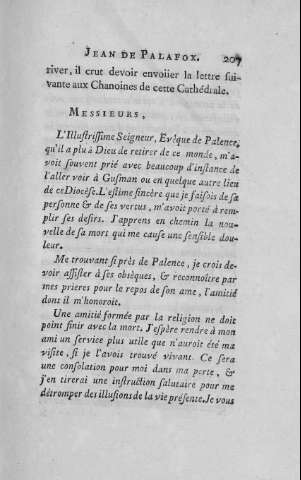 JEAN DE PALAFOX. 207
river, il crut devoir envoiier la lettre sui-
vante aux Chanoines de cette Cathédrale.
MESSIEURS,
L'Illustrissime Seigneur, Evêque de Palence,
qu'il a plu à Dieu de retirer de ce monde, m'a-
voit souvent prié avec beaucoup d'instance de
l'aller voir à Gusman ou en quelque autre lieu
de ce Diocèse. L'estime sincère que je faisois de sa
personne & de ses vertus, m'avoit porté à rem-
plir ses desirs. J'apprens en chemin la nou-
velle de sa mort qui me cause une sensible dou-
leur.
Me trouvant si près de Palence, je crois de-
voir assister à ses obsèques, & reconnoître par
mes prieres pour le repos de son ame, l'amitié
dont il m'honoroit.
Une amitié formée par la religion ne doit
point finir avec la mort. J'espère rendre à mon
ami un service plus utile que n'auroit été ma
visite, si je l'avois trouvé vivant. Ce sera
une consolation pour moi dans ma perte, &
j'en tirerai une instruction salutaire pour me
détromper des illusions de la vie présente. Je vous